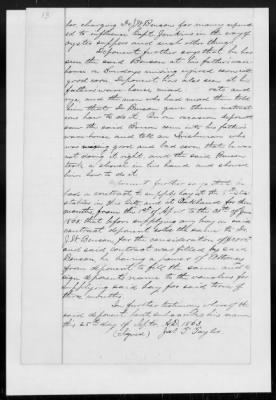 for, charging Dr J W Benson for money expend
ed to influence Capt. Jenkins in the way of
oyster suppers and such other things.
Deponent further says that he has
seen the said Benson at his father's ware
house on Sundays mixing spoiled corn with
good corn. Deponent has also seen at his
father's ware house mixed oats and
rye, and the men who had mixed them told
him that Dr Benson was there
to do it. On one occasion depon
ent saw the said Benson come into his father's
ware house and told an Irishman who
was mixing good and bad corn that he was
not doing it right, and the said Benson
took a shovel in his hand and showed
him how to do it.
Deponent further says that he
had a contract to supply hay at the
stables in this City and at for three
months, from the 1st of April to the 30th of June
1863, that before supplying any hay on said
contract deponent sold the same to Dr
J. W. Benson for the consideration of
and said contract was filled by the said
Benson he having a power of Attorney
from deponent to fill the same and to
sign deponent's name to the vouchers for
supplying said hay for said term of
three months.
In further testimony whereof the
said deponent hath subscribed his name
this 25th day of Septr A.D. 1863.
(Signed) Jas. T. Taylor